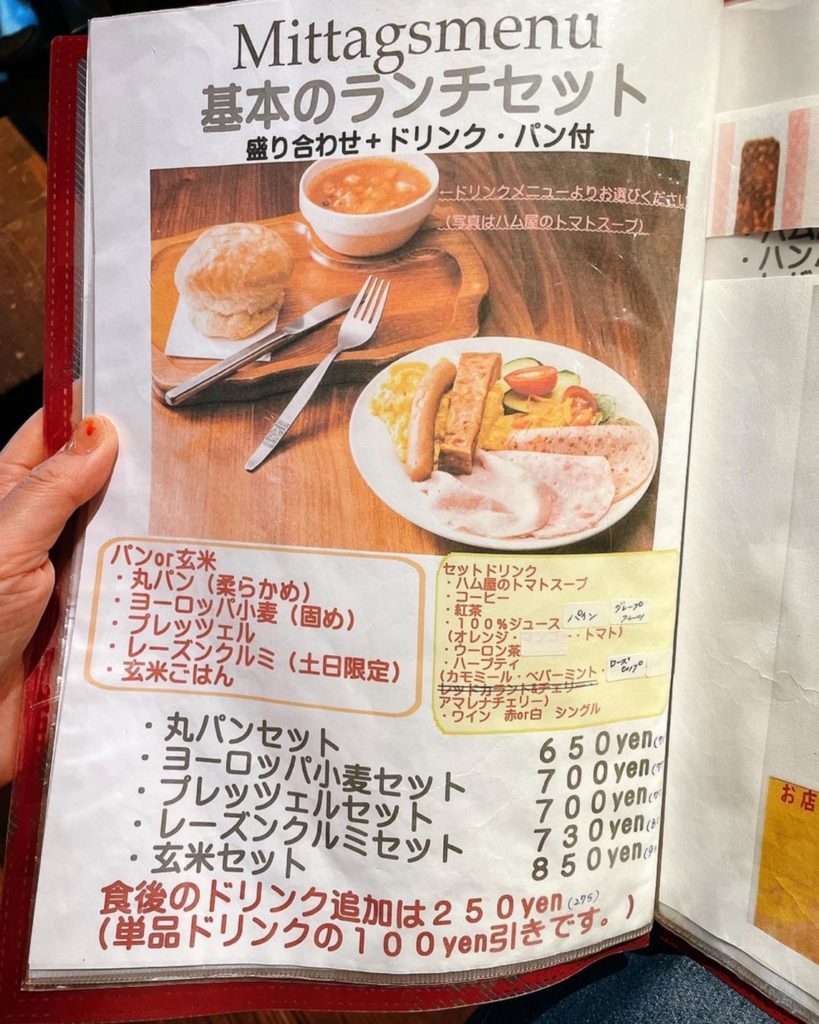 Mittagsmenu
基本のランチセット
盛り合わせ+ドリンク・パン付
←ドリンクメニューよりお選びください
(写真はハム屋のトマトスープ)
パンor玄米
・丸パン(柔らかめ)
・ヨーロッパ小麦(固め)
・プレッツェル
・レーズンクルミ(土日限定)
・玄米ごはん
セットドリンク
・ハム屋のトマトスープ
・コーヒー
・紅茶
・100%ジュース パイン グレープフルーツ
(オレンジ・マンゴー・トマト)
・ウーロン茶
・ハーブティ
(カモミール・ペパーミント・ローズヒップ
レッドカラント&チェリー
アマレナチェリー)
・ワイン 赤or白 シングル
・丸パンセット 650yen
・ヨーロッパ小麦セット 700yen
・プレッツェルセット 700yen
・レーズンクルミセット 730yen
・玄米セット 850yen
食後のドリンク追加は250yen(275)
(単品ドリンクの100yen引きです。)
・ハン
お店